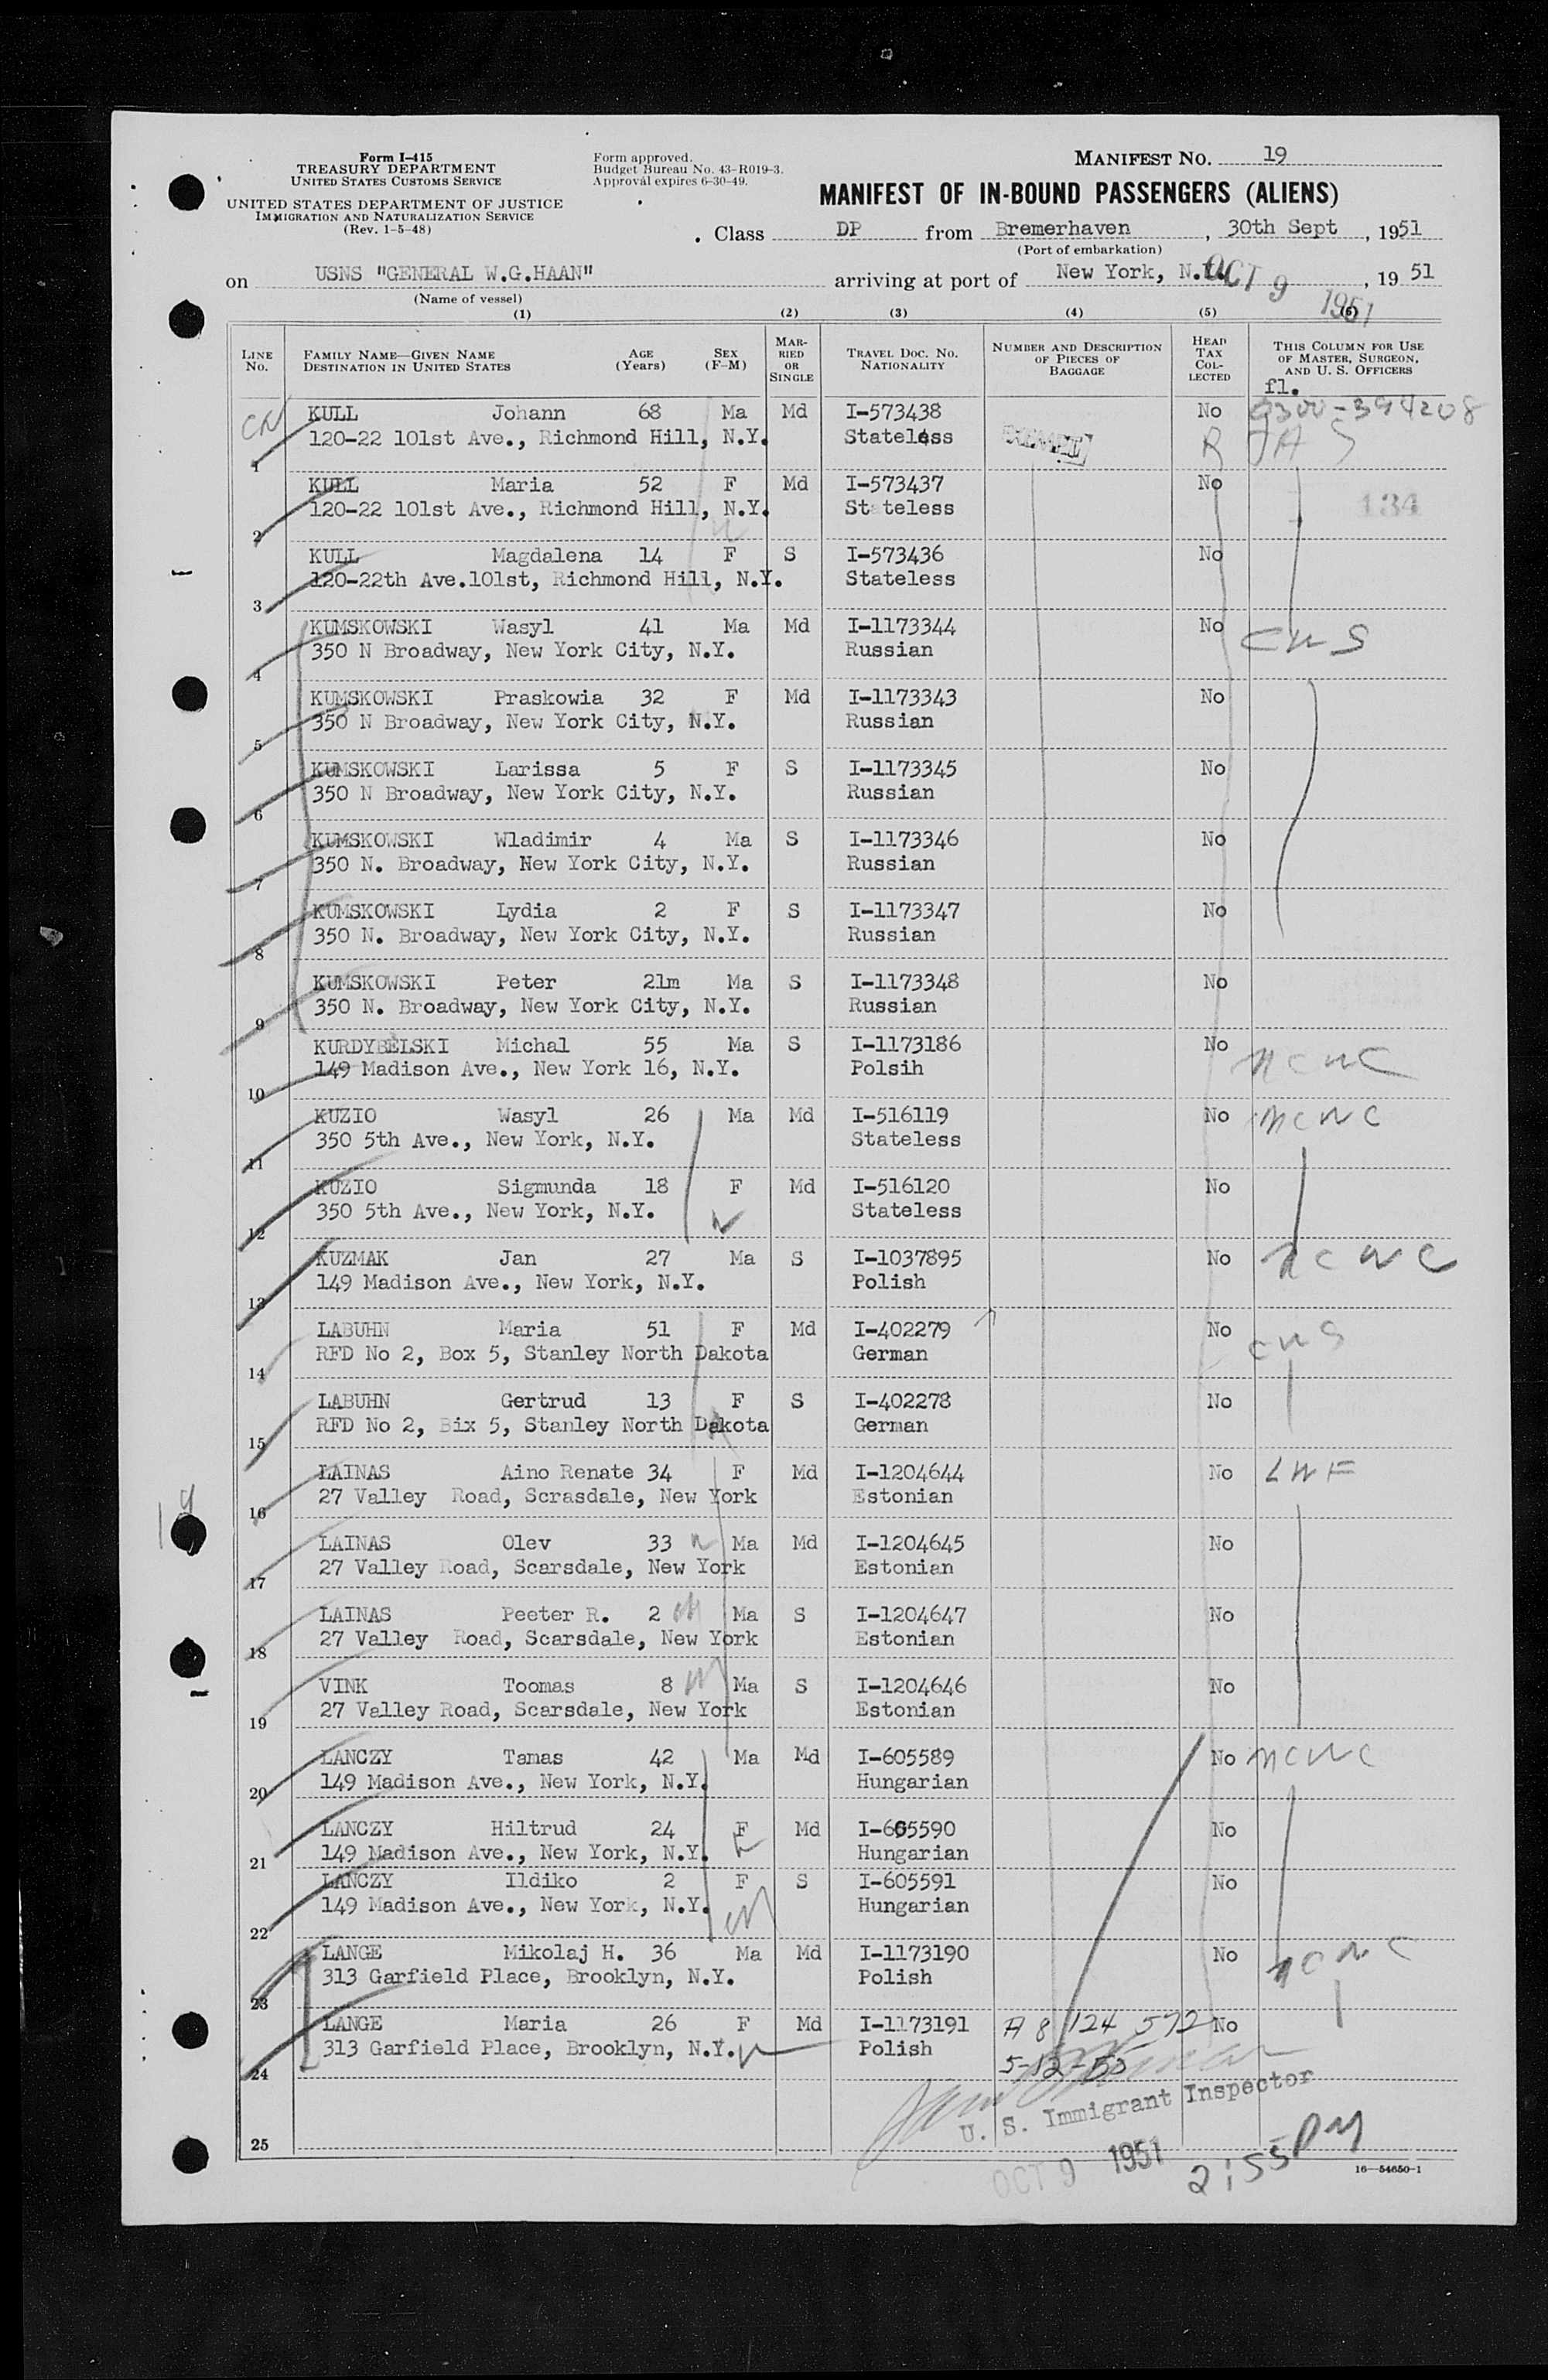 Form I-415
TREASURY DEPARTMENT
UNITED STATES CUSTOMS SERVICE
UNITED STATES DEPARTMENT OF JUSTICE
IMMIGRATION AND NATURALIZATION SERVICE
(Rev. 1-5-48)
Form approved.
Budget Bureau No. 43-R019-3.
Approval expires 6-30-49.
MANIFEST No. 19
MANIFEST OF IN-BOUND PASSENGERS (ALIENS)
Class DP from Bremerhaven, 30th Sept, 1951
(Port of embarkation)
on USNS "GENERAL W.G.HAAN" arriving at port of New York, N.Y. OCT 9 1951, 19 51
(Name of vessel)
(1) (2) (3) (4) (5) (6)
LINE No. FAMILY NAME—GIVEN NAME DESTINATION IN UNITED STATES AGE (Years) SEX (F-M) MARRIED OR SINGLE TRAVEL DOC. NO. NATIONALITY NUMBER AND DESCRIPTION OF PIECES OF BAGGAGE HEAD TAX COLLECTED THIS COLUMN FOR USE OF MASTER, SURGEON, AND U. S. OFFICERS
fl.
CN KULL Johann 68 Ma Md I-573438 No 0300-394208
1 120-22 101st Ave., Richmond Hill, N.Y. Stateless
KULL Maria 52 F Md I-573437 No
2 120-22 101st Ave., Richmond Hill, N.Y. Stateless 134
KULL Magdalena 14 F S I-573436 No
3 120-22th Ave.101st, Richmond Hill, N.Y. Stateless
KUMSKOWSKI Wasyl 41 Ma Md I-1173344 No CWS
4 350 N Broadway, New York City, N.Y. Russian
KUMSKOWSKI Praskowia 32 F Md I-1173343 No
5 350 N Broadway, New York City, N.Y. Russian
KUMSKOWSKI Larissa 5 F S I-1173345 No
6 350 N Broadway, New York City, N.Y. Russian
KUMSKOWSKI Wladimir 4 Ma S I-1173346 No
7 350 N. Broadway, New York City, N.Y. Russian
KUMSKOWSKI Lydia 2 F S I-1173347 No
8 350 N. Broadway, New York City, N.Y. Russian
KUMSKOWSKI Peter 21m Ma S I-1173348 No
9 350 N. Broadway, New York City, N.Y. Russian
KURDYBELSKI Michal 55 Ma S I-1173186 No NCWC
10 149 Madison Ave., New York 16, N.Y. Polsih
KUZIO Wasyl 26 Ma Md I-516119 No NCWC
11 350 5th Ave., New York, N.Y. Stateless
KUZIO Sigmunda 18 F Md I-516120 No
12 350 5th Ave., New York, N.Y. Stateless
KUZMAK Jan 27 Ma S I-1037895 No NCWC
13 149 Madison Ave., New York, N.Y. Polish
LABUHN Maria 51 F Md I-402279 No CWS
14 RFD No 2, Box 5, Stanley North Dakota German
LABUHN Gertrud 13 F S I-402278 No
15 RFD No 2, Bix 5, Stanley North Dakota German
LAINAS Aino Renate 34 F Md I-1204644 No LWF
16 27 Valley Road, Scrasdale, New York Estonian
LAINAS Olev 33 Ma Md I-1204645 No
17 27 Valley Road, Scarsdale, New York Estonian
LAINAS Peeter R. 2 Ma S I-1204647 No
18 27 Valley Road, Scarsdale, New York Estonian
VINK Toomas 8 Ma S I-1204646 No
19 27 Valley Road, Scarsdale, New York Estonian
LANCZY Tamas 42 Ma Md I-605589 No NCWC
20 149 Madison Ave., New York, N.Y. Hungarian
LANCZY Hiltrud 24 F Md I-605590 No
21 149 Madison Ave., New York, N.Y. Hungarian
LANCZY Ildiko 2 F S I-605591 No
22 149 Madison Ave., New York, N.Y. Hungarian
LANGE Mikolaj H. 36 Ma Md I-1173190 No NCWC
23 313 Garfield Place, Brooklyn, N.Y. Polish
LANGE Maria 26 F Md I-1173191 A 8 124 572 No
24 313 Garfield Place, Brooklyn, N.Y. Polish 5-12-55
U. S. Immigrant Inspector
25
OCT 9 1951 2:55 PM
16—54650-1
19